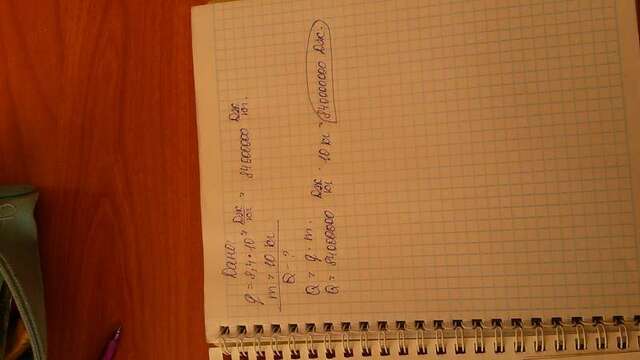 Дано:
q = 8,4 · 10⁷ Дж/кг = 84000000 Дж/кг.
m = 10 кг
Q - ?
Q = q · m.
Q = 84000000 Дж/кг · 10 кг = 840000000 Дж.